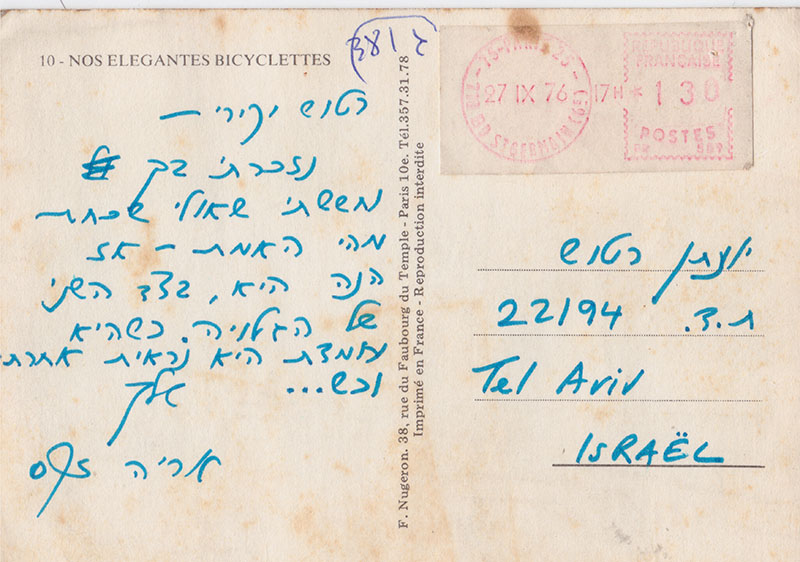 10 - NOS ELEGANTES BICYCLETTES
רטוש יקירי —
נזכרתי בך
נחששתי שאולי שכחת
מהי האמת - אז
הנה היא, בצד השני
של הגלויה. כשהיא
עומדת היא נראית אחרת
וכש...
שלך
אריה זקס
F. Nugeron. 38, rue du Faubourg du Temple - Paris 10e. Tél.357.31.78
Imprimé en France - Reproduction interdite
27 IX 76 17H
REPUBLIQUE
FRANÇAISE
* 130
POSTES
יונתן רטוש
ת.ד. 22194
Tel Aviv
ISRAËL